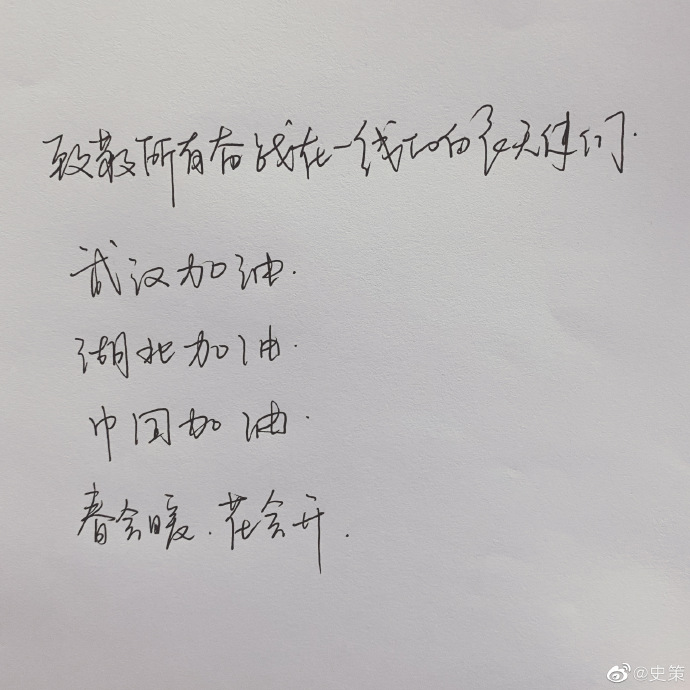 致敬所有奋战在一线的白衣天使们.
武汉加油.
湖北加油.
中国加油.
春会暖.花会开.
@史策